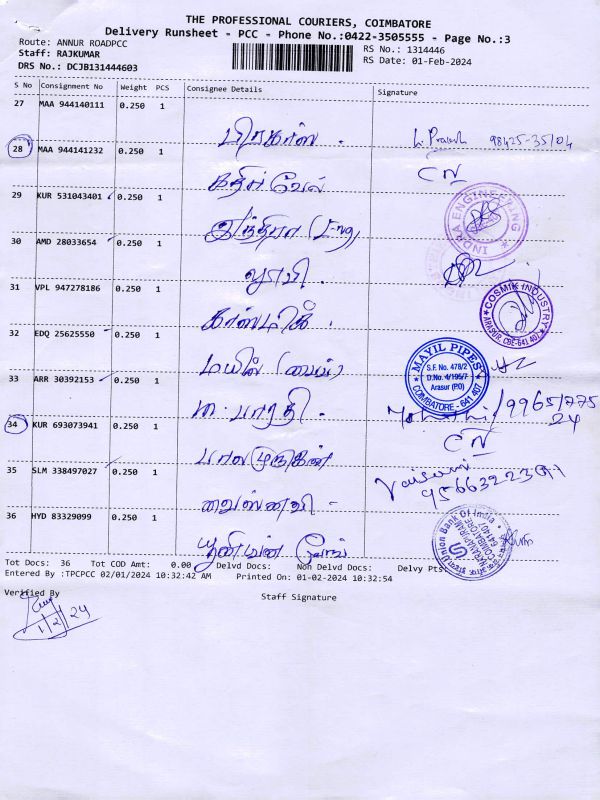 THE PROFESSIONAL COURIERS, COIMBATORE
Delivery Runsheet - PCC - Phone No.:0422-3505555 - Page No.:3
Route: ANNUR ROADPCC
RS No.: 1314446
Staff: RAJKUMAR
RS Date: 01-Feb-2024
DRS No.: DCJB131444603
S No Consignment No Weight PCS Consignee Details Signature
27 MAA 944140111 0.250 1
பிரகாஸ். 98425-35104
28 MAA 944141232 0.250 1
கதிர்வேல்
29 KUR 531043401 0.250 1
இந்திரா (Eng)
INDRA ENGINEERING
30 AMD 28033654 0.250 1
31 VPL 947278186 0.250 1
காஸ்மிக்.
COSMIK INDUSTRY
ARASUR, CBE-641 407
32 EDQ 25625550 0.250 1
மயில் (பைப்)
MAYIL PIPES
S.F. No. 478/2
D.No. 4/195/7
Arasur (P.O)
COIMBATORE - 641 407
33 ARR 30392153 0.250 1
பாரதி.
34 KUR 693073941 0.250 1
பாலமுருகன்
35 SLM 338497027 0.250 1
வைஸ்ணவி -
36 HYD 83329099 0.250 1
யூனியன்
Union Bank Of India
COIMBATORE
641-407
Tot Docs: 36 Tot COD Amt: 0.00 Delvd Docs: Non Delvd Docs: Delvy Pts:
Entered By :TPCPCC 02/01/2024 10:32:42 AM Printed On: 01-02-2024 10:32:54
Verified By Staff Signature
1/2/24